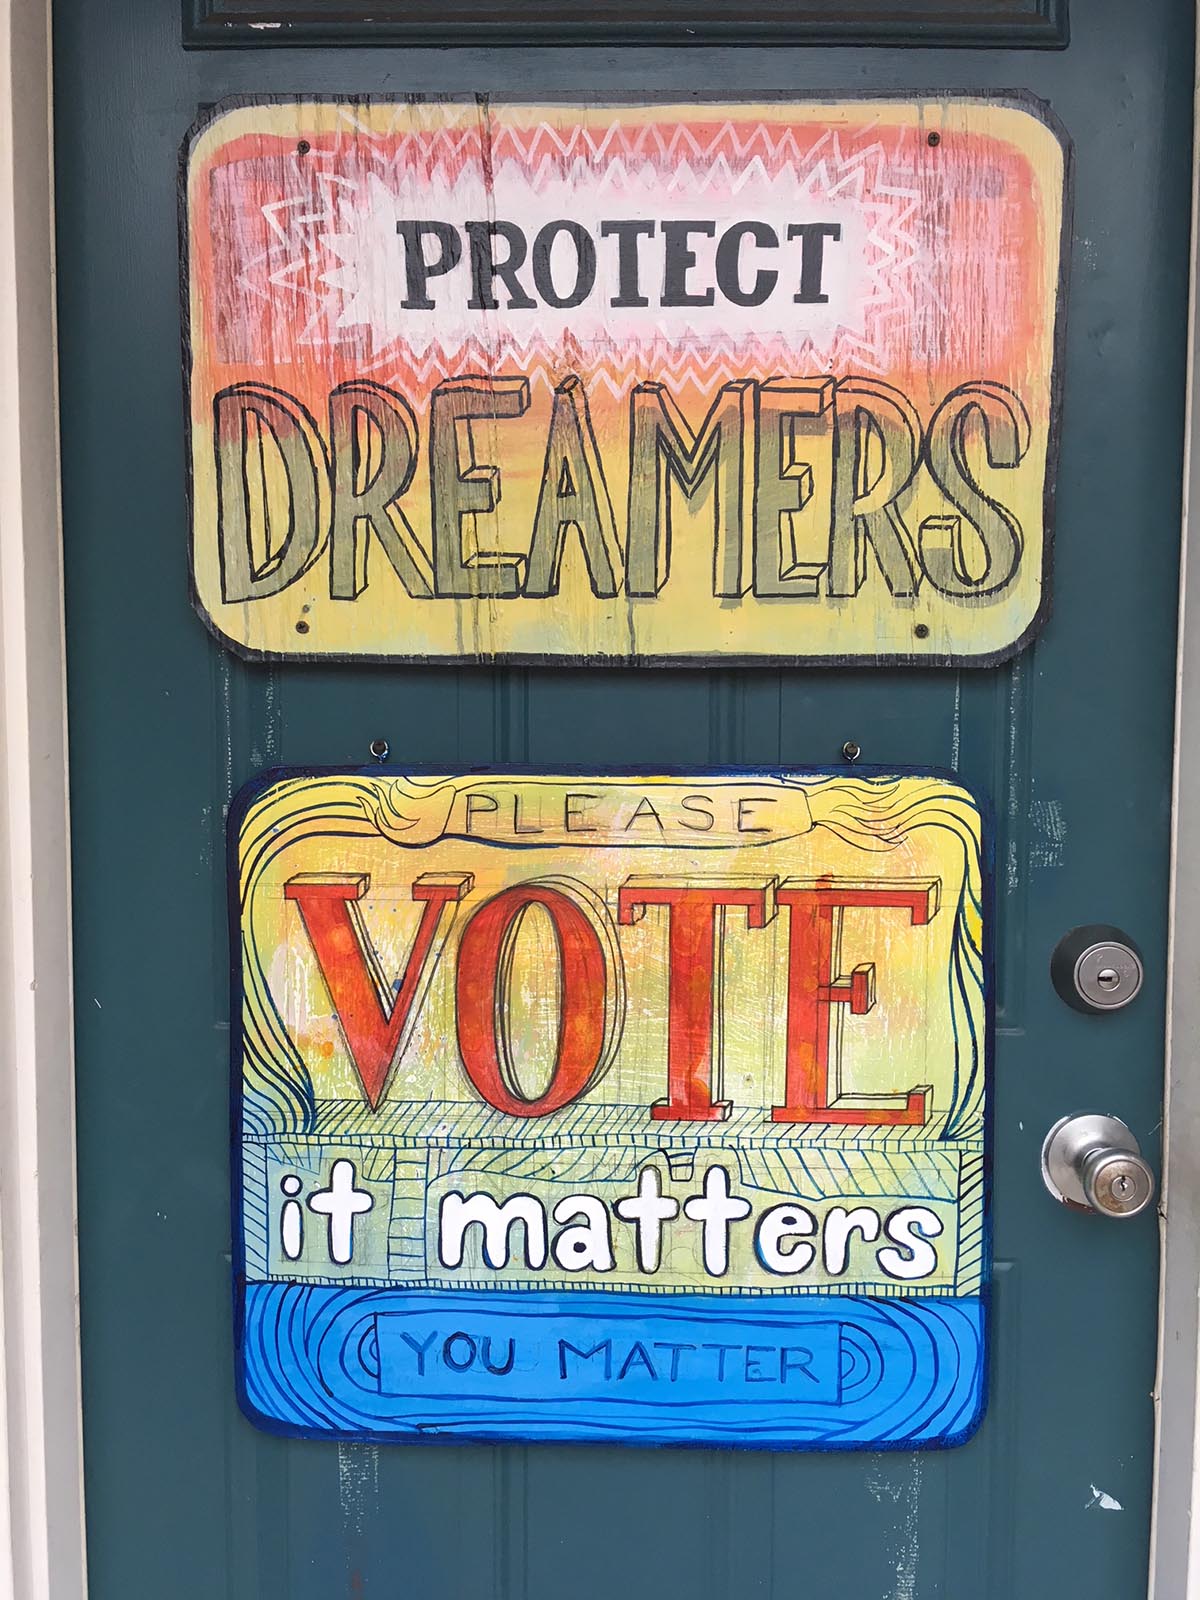 PROTECT
DREAMERS
PLEASE
VOTE
it matters
YOU MATTER